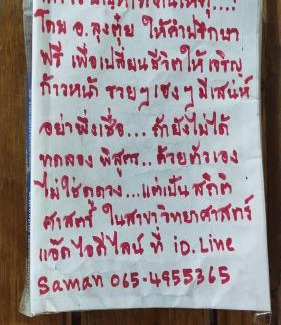 โดย อ. ลุงตุ้ย ให้คำปรึกษา
ฟรี เพื่อเปลี่ยนชีวิตให้ เจริญ
ก้าวหน้า รวยๆ เฮงๆ มีเสน่ห์
อย่าพึ่งเชื่อ... ถ้ายังไม่ได้
ทดลอง พิสูตร.. ด้วยตัวเอง
ไม่ใช่ดูดวง... แต่เป็น สถิติ
ศาสตร์ ในสาขาวิทยาศาสตร์
แอ๊ดไอดีไลน์ ที่ iD. Line
Saman 065-4955365